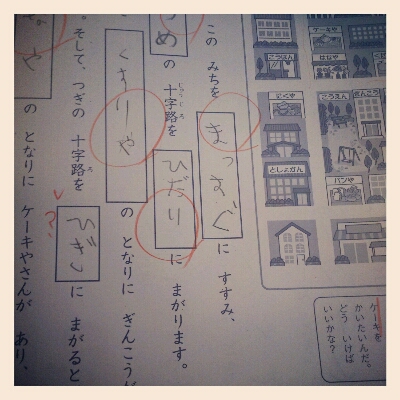 ケーキや
こうばん
はなや
にくや
こうえん
ぎんこう
としょかん
パンや
ケーキを
かいたいんだ。
どう いけば
いいかな?
この みちを まっすぐ に すすみ、
め の 十字路を ひだり に まがります。
くすりや の となりに ぎんこうが
。そして、つぎの 十字路を に まがると
?
や の となりに ケーキやさんが あり、